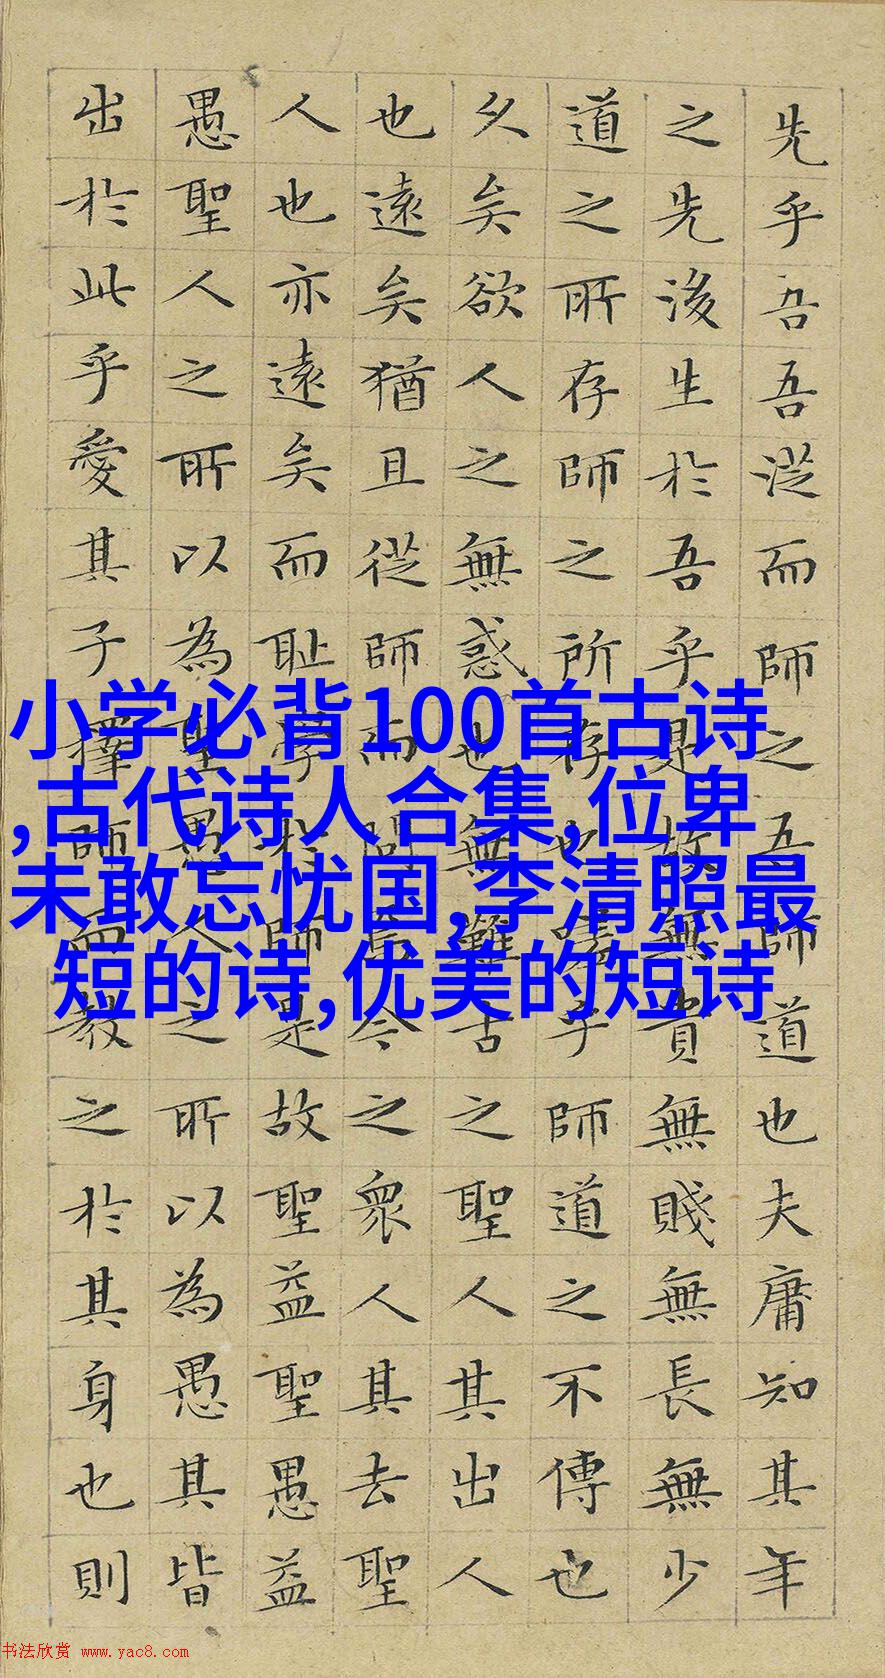 先乎吾吾從而師之吾師道也夫庸知其年
之先後生於吾乎是故無貴無賤無長無少
道之所存師之所存也嗟乎師道之不傳也
久矣欲人之無惑也無難古之聖人其出人
也遠矣猶且從師而問焉今之衆人其去聖
人也亦遠矣而耻學於師是故聖益聖愚益
愚聖人之所以為聖愚人之所以為愚其皆
出於此乎愛其子擇師而教之於其身也則
小学必背100首古诗
,古代诗人合集,位卑
未敢忘忧国,李清照最
短的诗,优美的短诗
书法欣赏 www.yac8.com